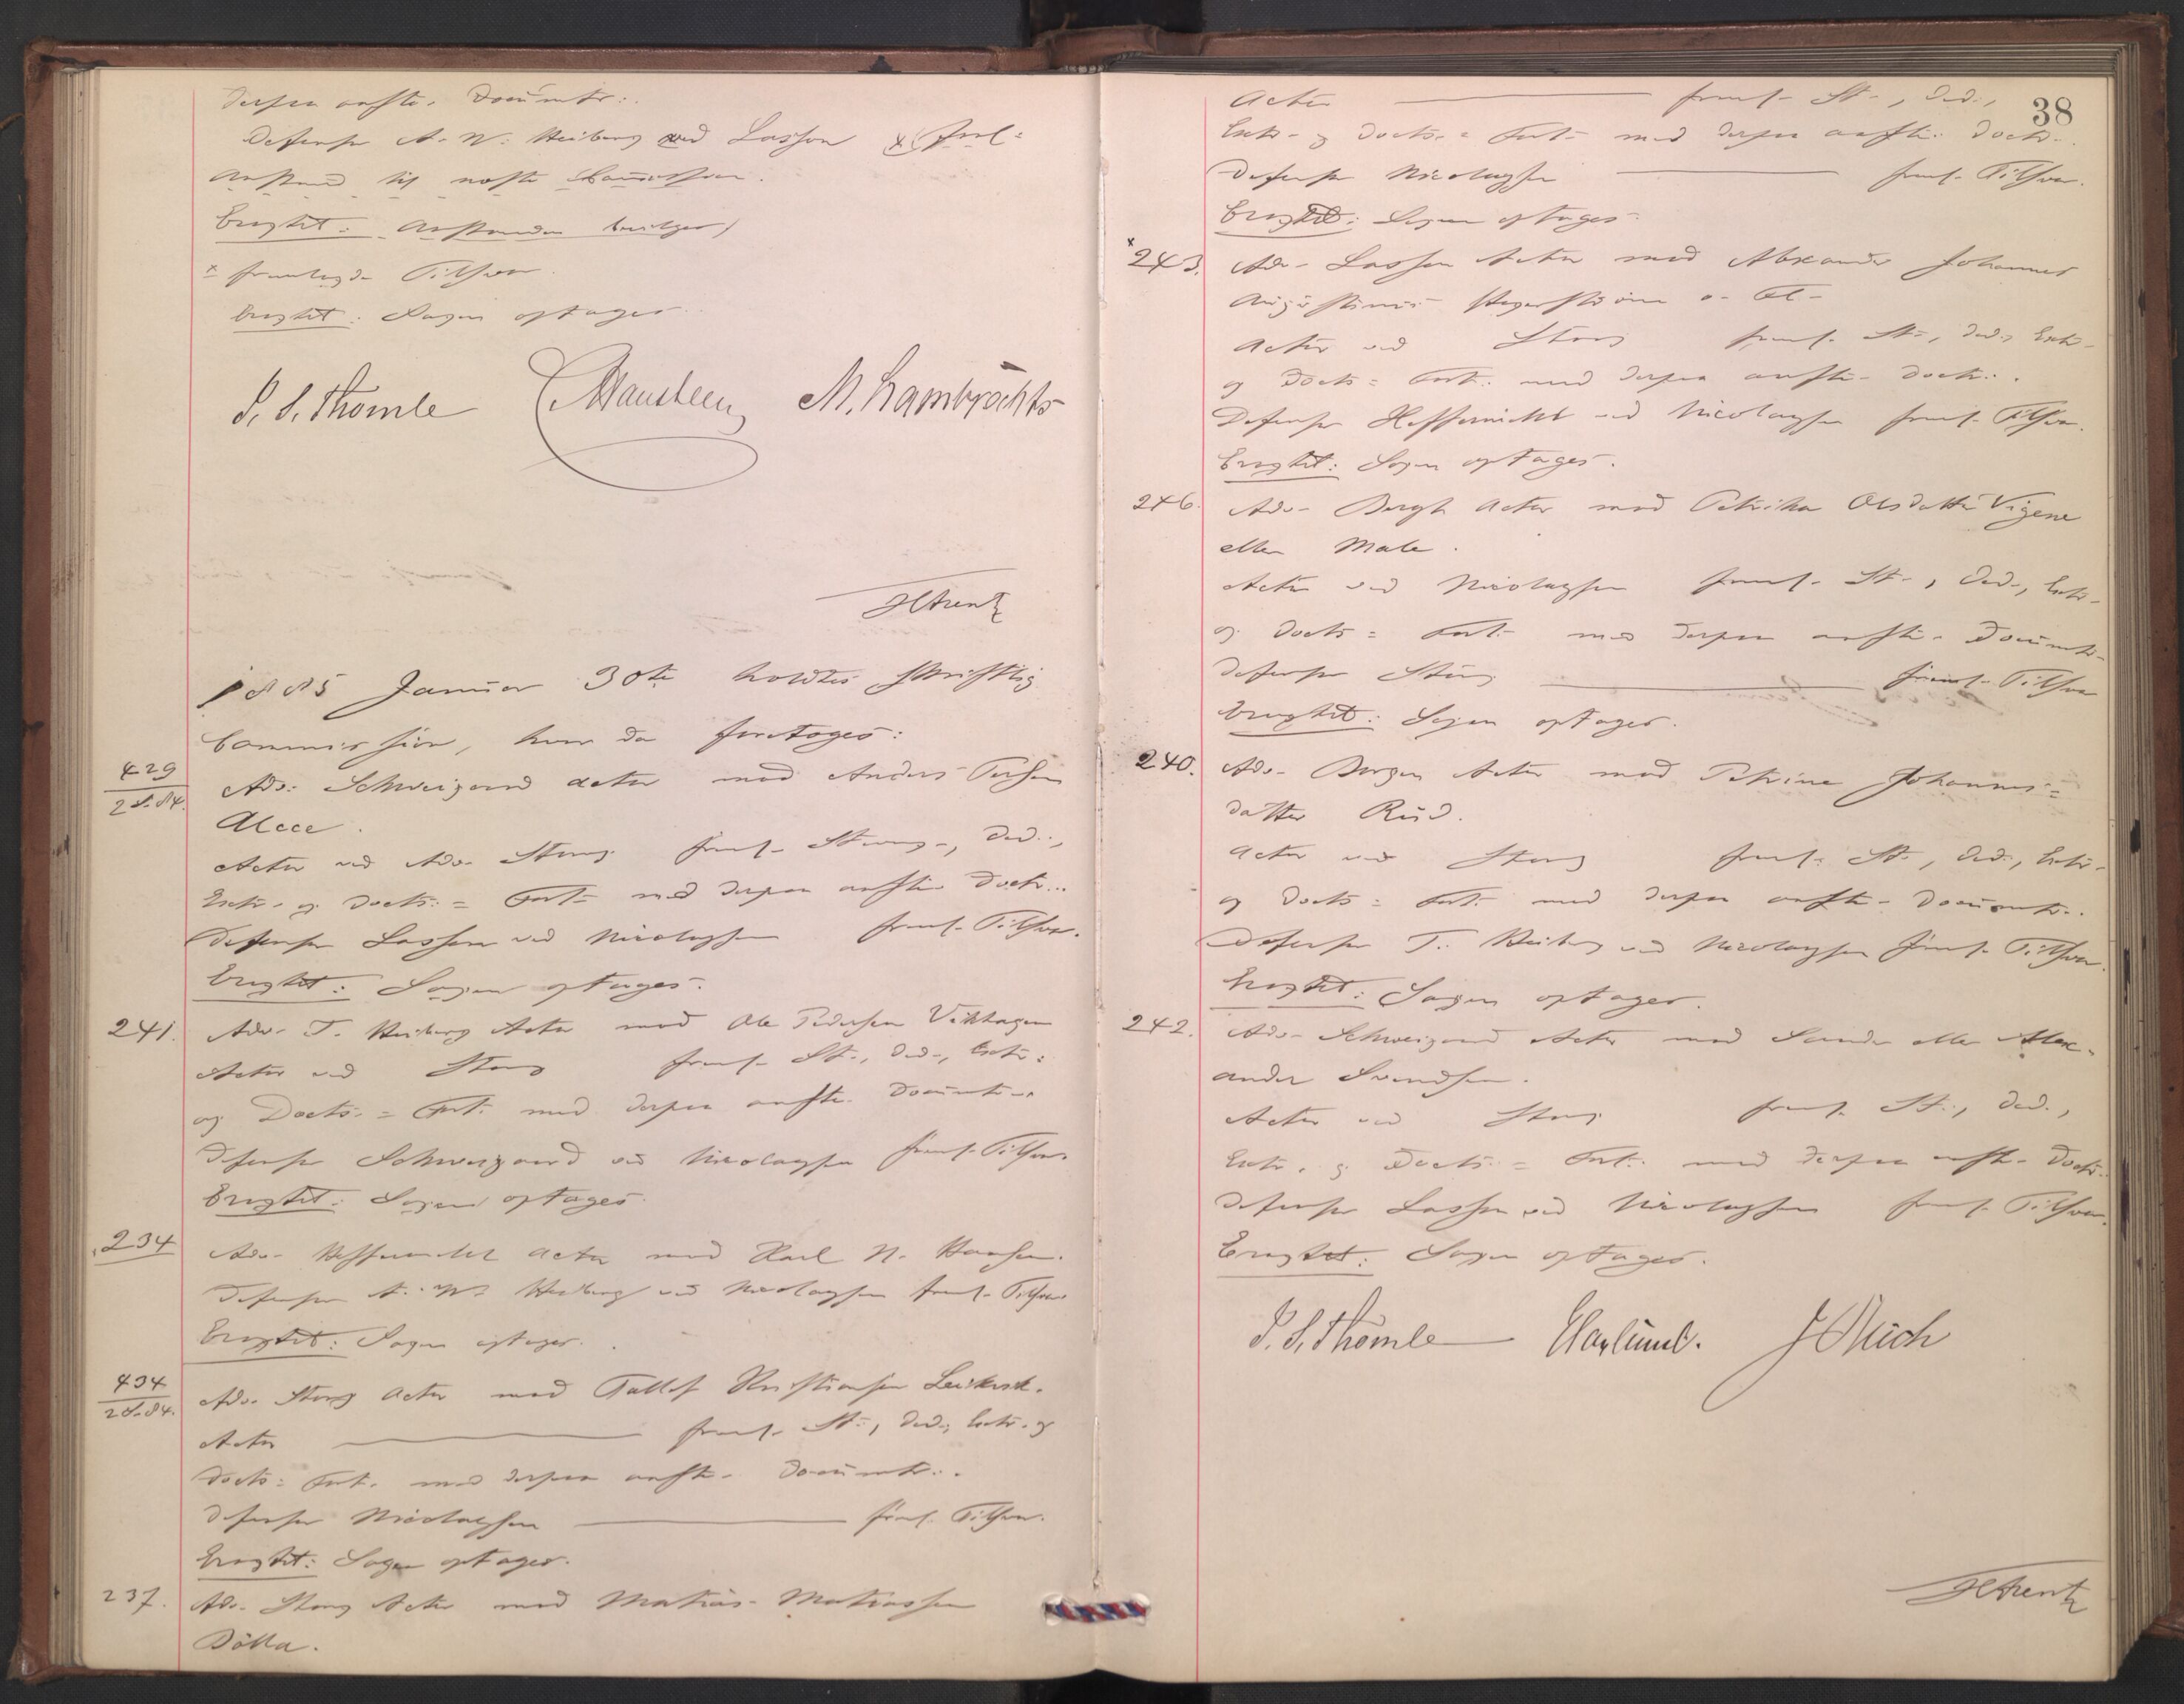 derpaa anfte. Documtr:.
Defensr A. W. Heiberg ved Lasson x
Anstand til næste Commission.
Eragtet: Anstanden bevilges
x fremlagde Tilsvar.
Eragtet: Sagen optages.
P. S. Thomle CHansteen M. Lambrechts
HArentz
1885 Januar 30te holdtes skriftlig
Commission, hvor da foretoges:
429
2 S. 84.
Adv: Schweigaard Actor mod Anders Persen
Actor ved Adv. Stang freml. Stevng., Ded.,
Extr. og Docts: = Fort. med derpaa anfte Doctr..
Defensr Lasson ved Nicolaysen freml. Tilsvar.
Eragtet: Sagen optages.
241. Adv. T. Heiberg Actor mod Ole Pedersen Vikhagen
Actor ved Stang freml. St., Ded., Extr.
og Docts. = Fort. med derpaa anfte. Documtr..
Defensr Schweigaard ved Nicolaysen freml. Tilsvar.
Eragtet: Sagen optages.
234 Adv. Actor mod Karl N. Hansen.
Defensr A. W. Heiberg ved Nicolaysen freml. Tilsvar
Eragtet: Sagen optages.
434
2 S. 84.
Adv. Stang Actor mod Tallef Kristiansen
Actor — freml. St., Ded., Extr. og
Docts: Fort. med derpaa anfte. Documtr..
Defensr Nicolaysen — freml. Tilsvar.
Eragtet: Sagen optages.
237. Adv. Stang Actor mod Matias Matiassen
Dölla.
38
Actor — freml. St., Ded.,
Extr. og Docts. = Fort. med derpaa anfte. Doctr..
Defensr Nicolaysen — freml. Tilsvar.
Eragtet: Sagen optages.
x
243. Adv. Lasson Actor mod Alexander Johannes
o. Fl.
Actor ved Stang freml. St., Ded., Extr.
og Docts = Fort. med derpaa anfte. Doctr..
Defensr ved Nicolaysen freml. Tilsvar.
Eragtet: Sagen optages.
246. Adv. Bergh Actor mod Petrika Olsdatter Vigene
eller Male.
Actor ved Nicolaysen freml. St., Ded., Extr.
og Docts = Fort. med derpaa anfte. Documtr.
Defensr Stang — freml. Tilsvar
Eragtet: Sagen optages.
240. Adv. Actor mod Petrine Johannes=
datter Rud.
Actor ved Stang freml. St., Ded., Extr.
og Docts = Fort. med derpaa anfte. Documtr..
Defensr T. Heiberg ved Nicolaysen freml. Tilsvar.
Eragtet: Sagen optages.
242. Adv. Schweigaard Actor mod Sander eller Alex=
ander Svendsen.
Actor ved Stang freml. St., Ded.,
Extr. og Docts. = Fort. med derpaa anfte. Doctr.
Defensr Lasson ved Nicolaysen freml. Tilsvar.
Eragtet: Sagen optages.
P. S. Thomle
HArentz